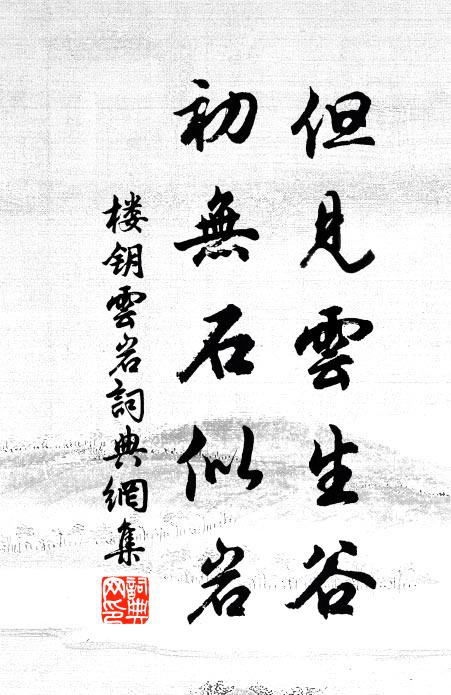 但見雲生谷
初無石似岩
楼钥雲岩詞典網集
詞典網印